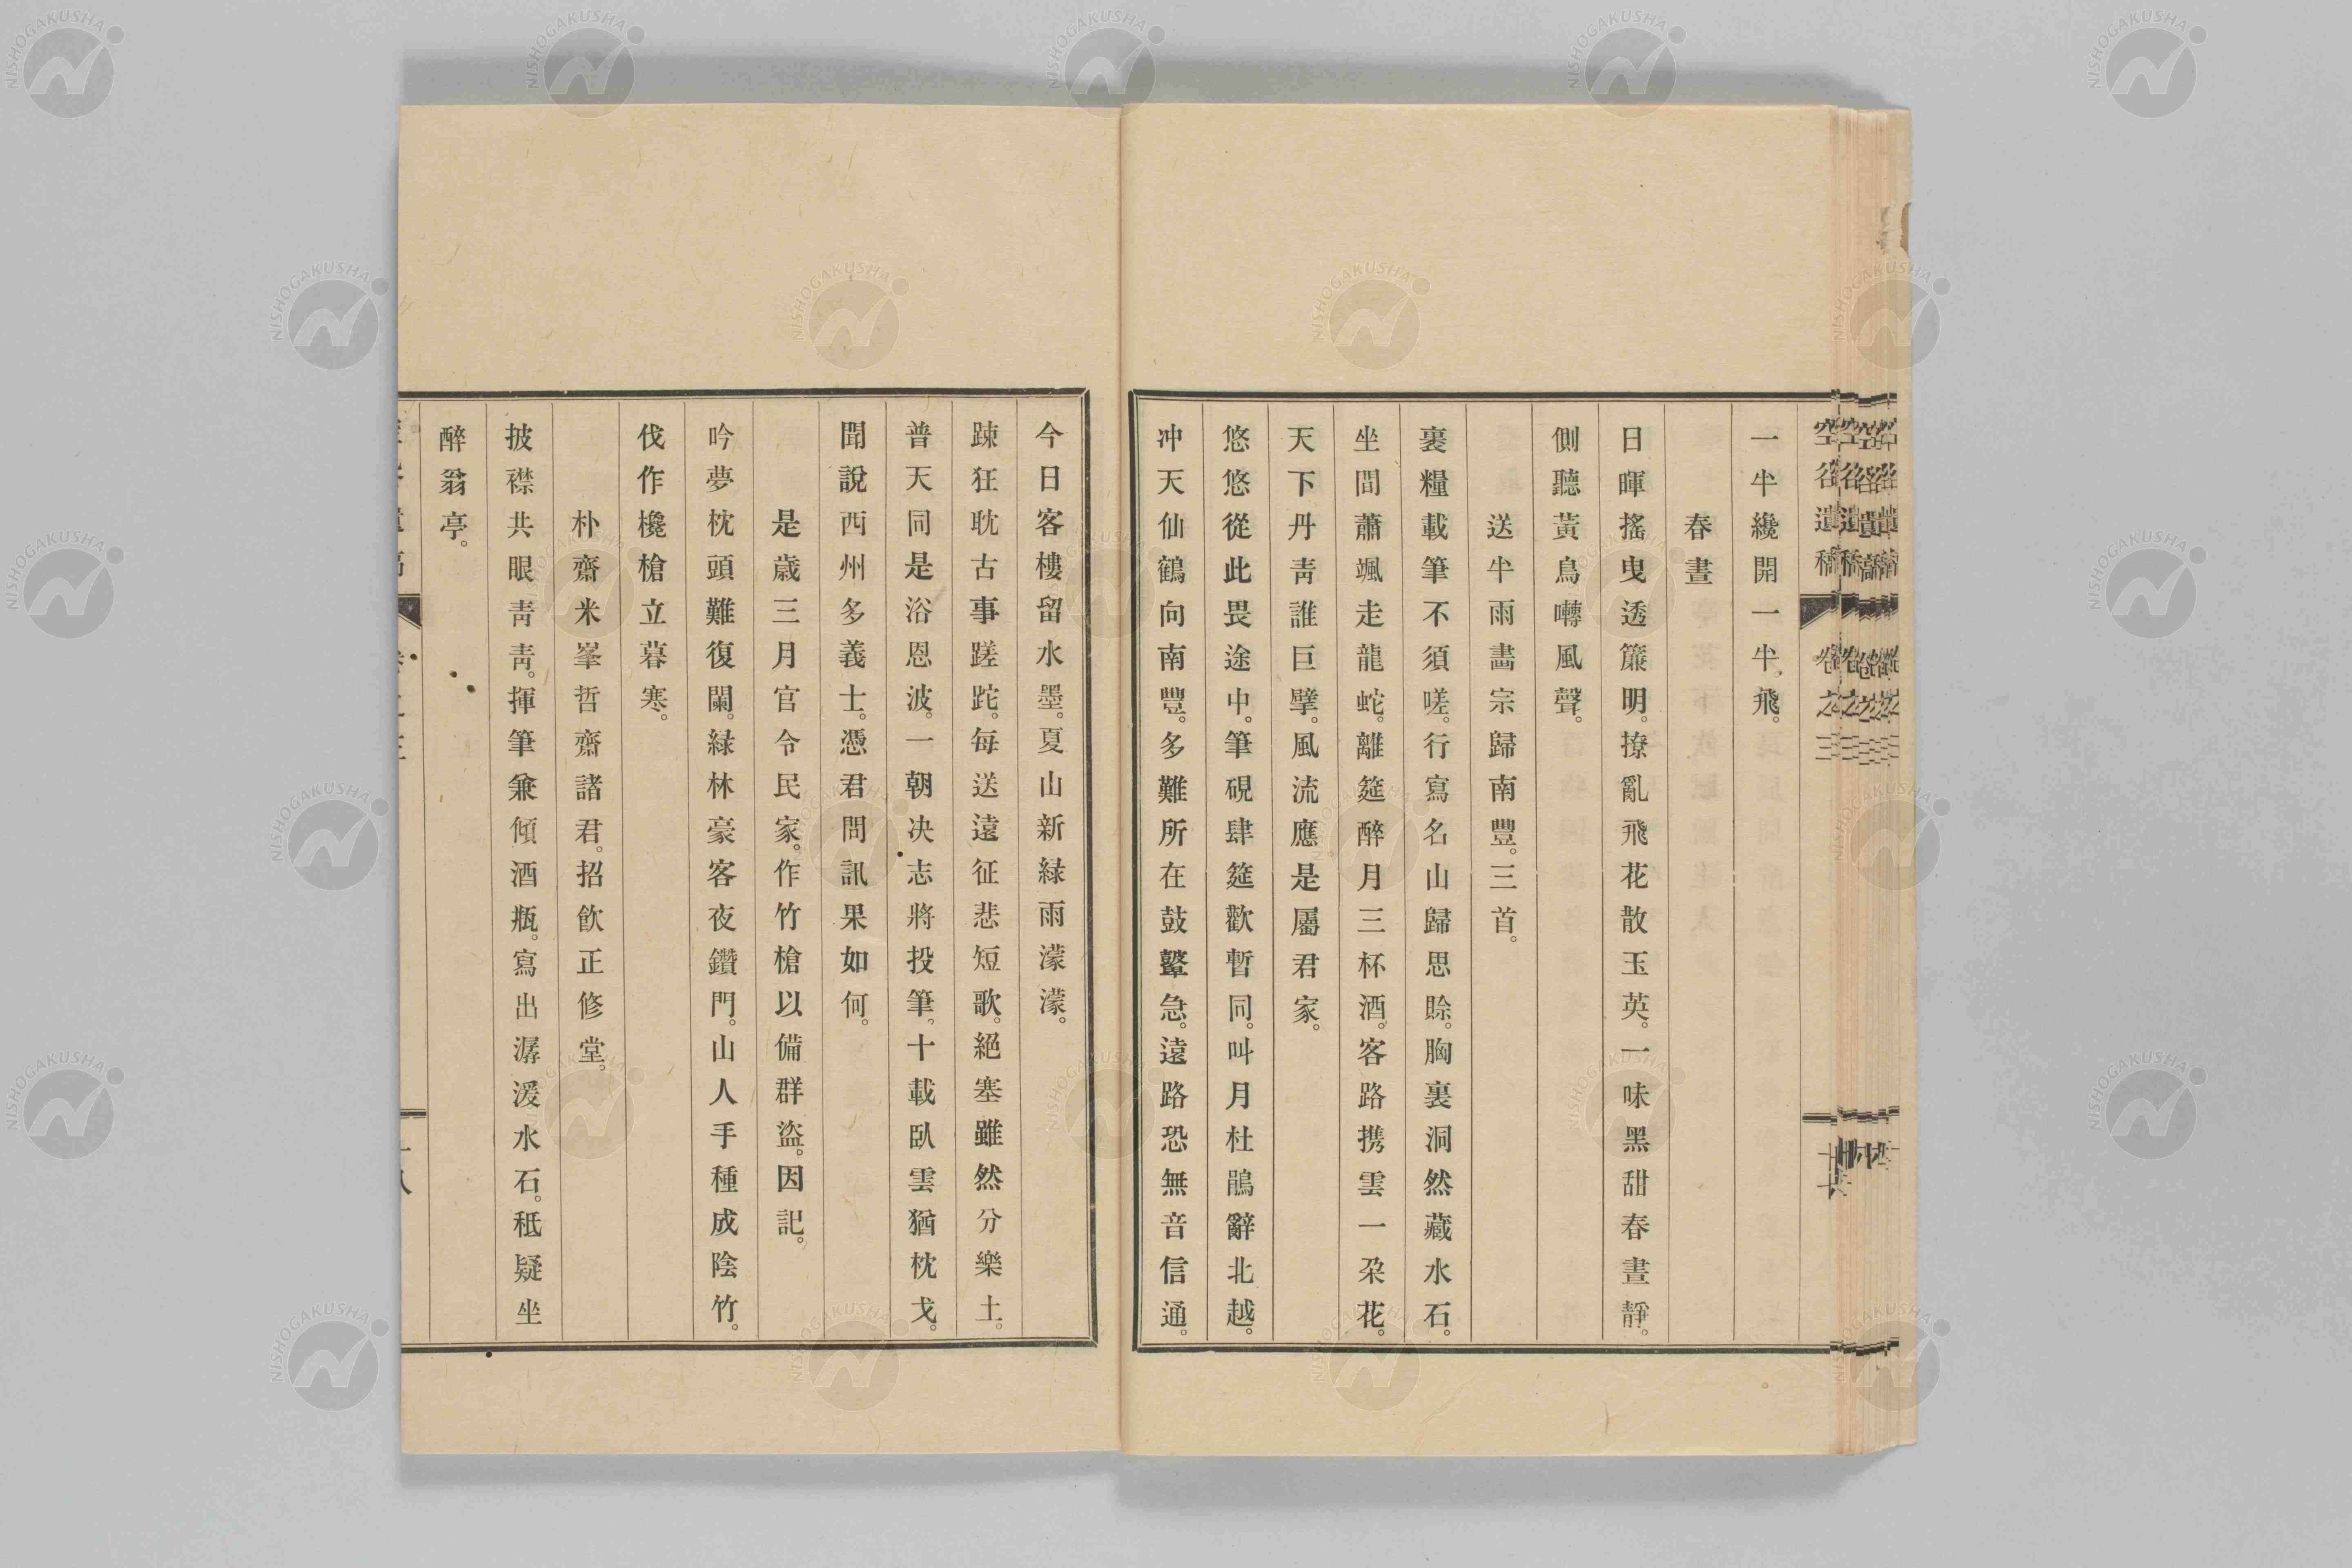 空谷遺稿 卷之三
一半纔開一半飛。
春晝
日暉搖曳透簾明。撩亂飛花散玉英。一味黑甜春晝靜。
側聽黃鳥囀風聲。
送半雨畵宗歸南豐。三首。
裹糧載筆不須嗟。行寫名山歸思賒。胸裏洞然藏水石。
坐間蕭颯走龍蛇。離筵醉月三杯酒。客路携雲一朶花。
天下丹靑誰巨擘。風流應是屬君家。
悠悠從此畏途中。筆硯肆筵歡暫同。叫月杜鵑辭北越。
冲天仙鶴向南豐。多難所在鼓鼙急。遠路恐無音信通。
今日客樓留水墨。夏山新緑雨濛濛。
踈狂耽古事蹉跎。每送遠征悲短歌。絕塞雖然分樂土。
普天同是浴恩波。一朝决志將投筆。十載臥雲猶枕戈。
聞說西州多義士。憑君問訊果如何。
是歲三月官令民家。作竹槍以備群盜。因記。
吟夢枕頭難復闌。緑林豪客夜鑽門。山人手種成陰竹。
伐作欃槍立暮寒。
朴齋米峯哲齋諸君。招飮正修堂。
披襟共眼靑靑。揮筆兼傾酒瓶。寫出潺湲水石。秖疑坐
醉翁亭。
NISHOGAKUSHA